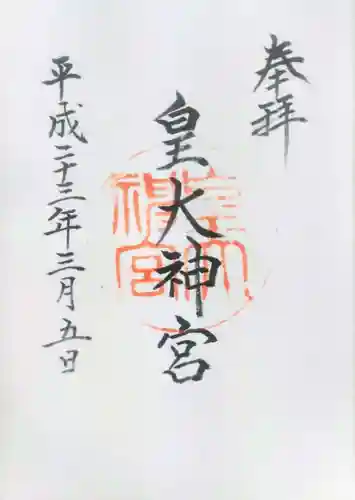 奉拝
皇大神宮
平成二十三年三月五日